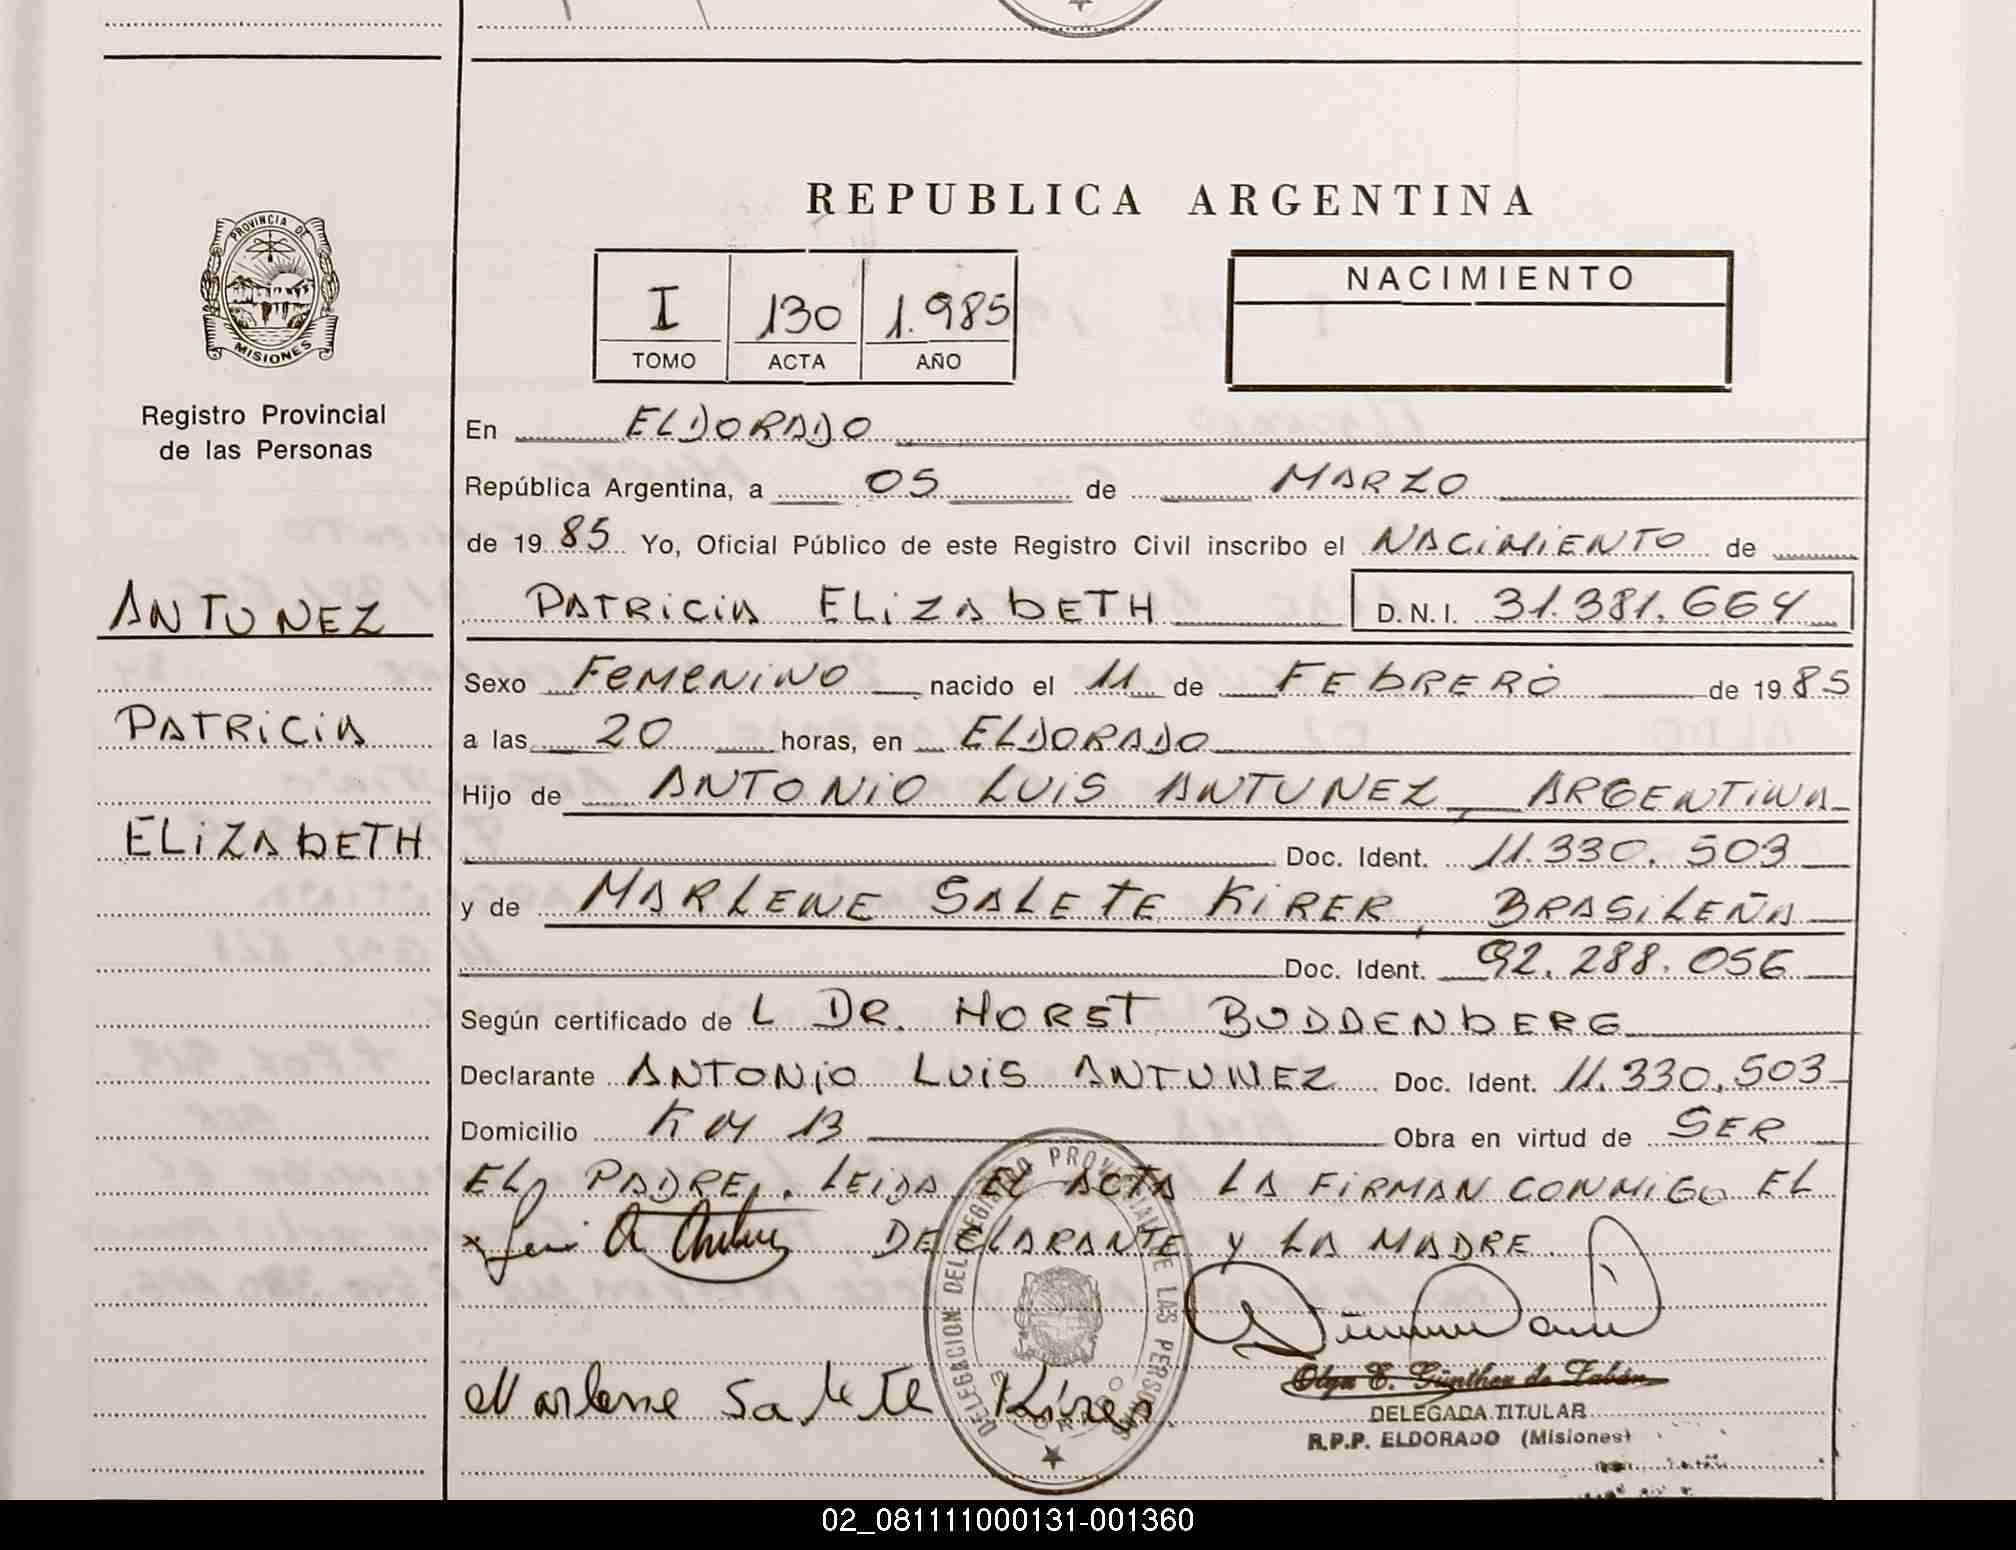 PROVINCIA DE
MISIONES
Registro Provincial
de las Personas
ANTUNEZ
PATRICIA
ELIZABETH
REPUBLICA ARGENTINA
I 130 1.985
TOMO ACTA AÑO
NACIMIENTO
En ELDORADO
República Argentina, a 05 de MARZO
de 19 85 Yo, Oficial Público de este Registro Civil inscribo el NACIMIENTO de
PATRICIA ELIZABETH D.N.I. 31.381.664
Sexo FEMENINO nacido el 11 de FEBRERO de 19 85
a las 20 horas, en ELDORADO
Hijo de ANTONIO LUIS ANTUNEZ, ARGENTINA
Doc. Ident. 11.330.503
y de MARLENE SALETE KIRER, BRASILEÑA
Doc. Ident. 92.288.056
Según certificado de L DR. HORST BUDDENBERG
Declarante ANTONIO LUIS ANTUNEZ Doc. Ident. 11.330.503
Domicilio KM 13 Obra en virtud de SER
EL PADRE. LEIDA EL ACTA LA FIRMAN CONMIGO EL
DECLARANTE Y LA MADRE
Marlene Salete Kirer
DELEGACION DEL REGISTRO PROVINCIAL DE LAS PERSONAS
ELDORADO
Olga E. Günther de Fabán
DELEGADA TITULAR
R.P.P. ELDORADO (Misiones)
02_081111000131-001360